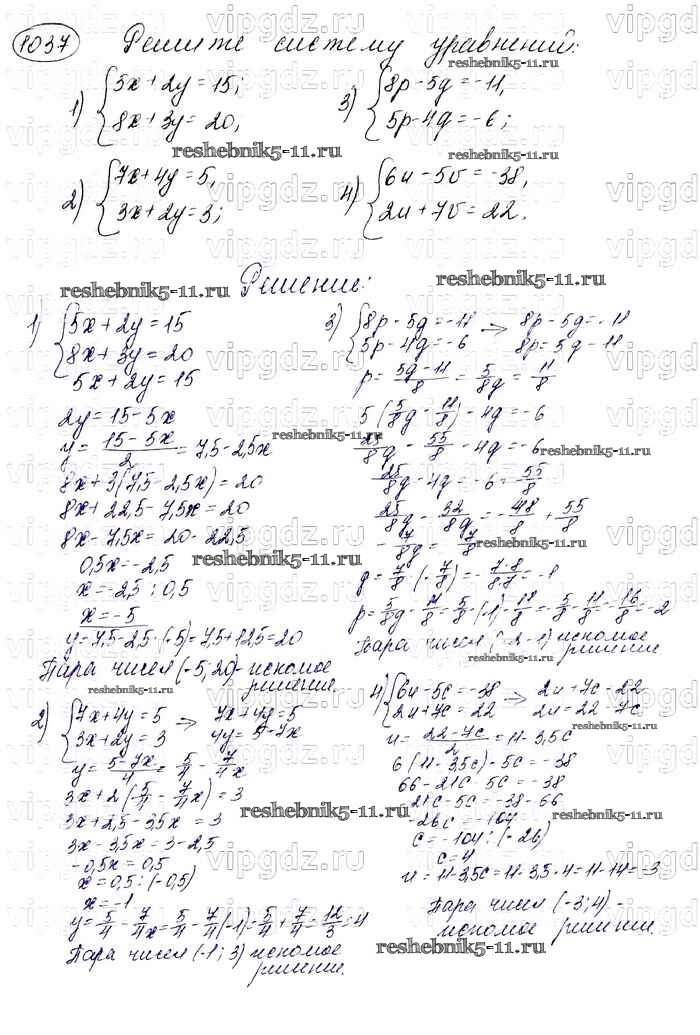 1037 Решите систему уравнений:
1) { 5x + 2y = 15;
8x + 3y = 20,
3) { 8p - 5q = -11,
5p - 4q = -6;
2) { 7x + 4y = 5,
3x + 2y = 3;
4) { 6u - 5v = -38,
2u + 7v = 22.
Решение:
1) { 5x + 2y = 15
8x + 3y = 20
5x + 2y = 15
2y = 15 - 5x
y = (15 - 5x)/2 = 7,5 - 2,5x
8x + 3(7,5 - 2,5x) = 20
8x + 22,5 - 7,5x = 20
8x - 7,5x = 20 - 22,5
0,5x = -2,5
x = -2,5 : 0,5
x = -5
y = 7,5 - 2,5 · (-5) = 7,5 + 12,5 = 20
Пара чисел (-5; 20) - искомое
решение.
2) { 7x + 4y = 5 → 7x + 4y = 5
3x + 2y = 3 4y = 5 - 7x
y = (5 - 7x)/4 = 5/4 - 7/4x
3x + 2(5/4 - 7/4x) = 3
3x + 2,5 - 3,5x = 3
3x - 3,5x = 3 - 2,5
-0,5x = 0,5
x = 0,5 : (-0,5)
x = -1
y = 5/4 - 7/4x = 5/4 - 7/4(-1) = 5/4 + 7/4 = 12/3 = 4
Пара чисел (-1; 3) искомое
решение.
3) { 8p - 5q = -11 → 8p - 5q = -11
5p - 4q = -6 8p = 5q - 11
p = (5q - 11)/8 = 5/8q = 11/8
5(5/8q - 11/8) - 4q = -6
25/8q - 55/8 - 4q = -6
25/8q - 4q = -6 = 55/8
25/8q - 32/8q = -48/8 + 55/8
-7/8q = 7/8
q = 7/8 · (-7/8) = -7·8/8·7 = -1
p = 5/8q - 11/8 = 5/8 · (-1) - 11/8 = -5/8 - 11/8 = -16/8 = -2
Пара чисел (-2; -1) искомое
решение.
4) { 6u - 5c = -38 → 2u + 7c = 22
2u + 7c = 22 2u = 22 - 7c
u = (22 - 7c)/2 = 11 - 3,5c
6(11 - 3,5c) - 5c = -38
66 - 21c - 5c = -38
-21c - 5c = -38 - 66
-26c = -104
c = -104 : (-26)
c = 4
u = 11 - 3,5c = 11 - 3,5 · 4 = 11 - 14 = -3
Пара чисел (-3; 4) -
искомое решение.
reshebnik5-11.ru
vipgdz.ru